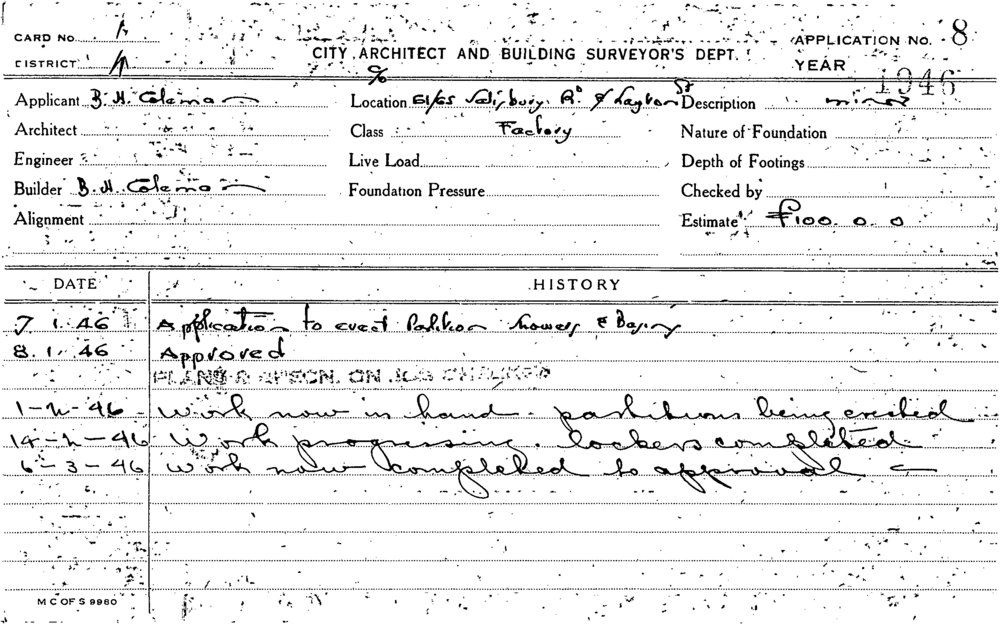 CARD No. A
DISTRICT A
CITY ARCHITECT AND BUILDING SURVEYOR'S DEPT.
APPLICATION No. 8
YEAR 1946
Applicant B. H. Coleman
c/o
Location 61/65 Salisbury Rd & Layton St
Description minor
Architect
Class Factory
Nature of Foundation
Engineer
Live Load
Depth of Footings
Builder B. H. Coleman
Foundation Pressure
Checked by
Alignment
Estimate £100. 0. 0
DATE HISTORY
7. 1. 46 Application to erect Partition Showers & Basins
8. 1. 46 Approved
PLANS & SPECN. ON JOB CHECKED
1-2-46 Work now in hand. partitions being erected
14-2-46 Work progressing. lockers completed.
6-3-46 Work now completed to approval
M C OF S 9980